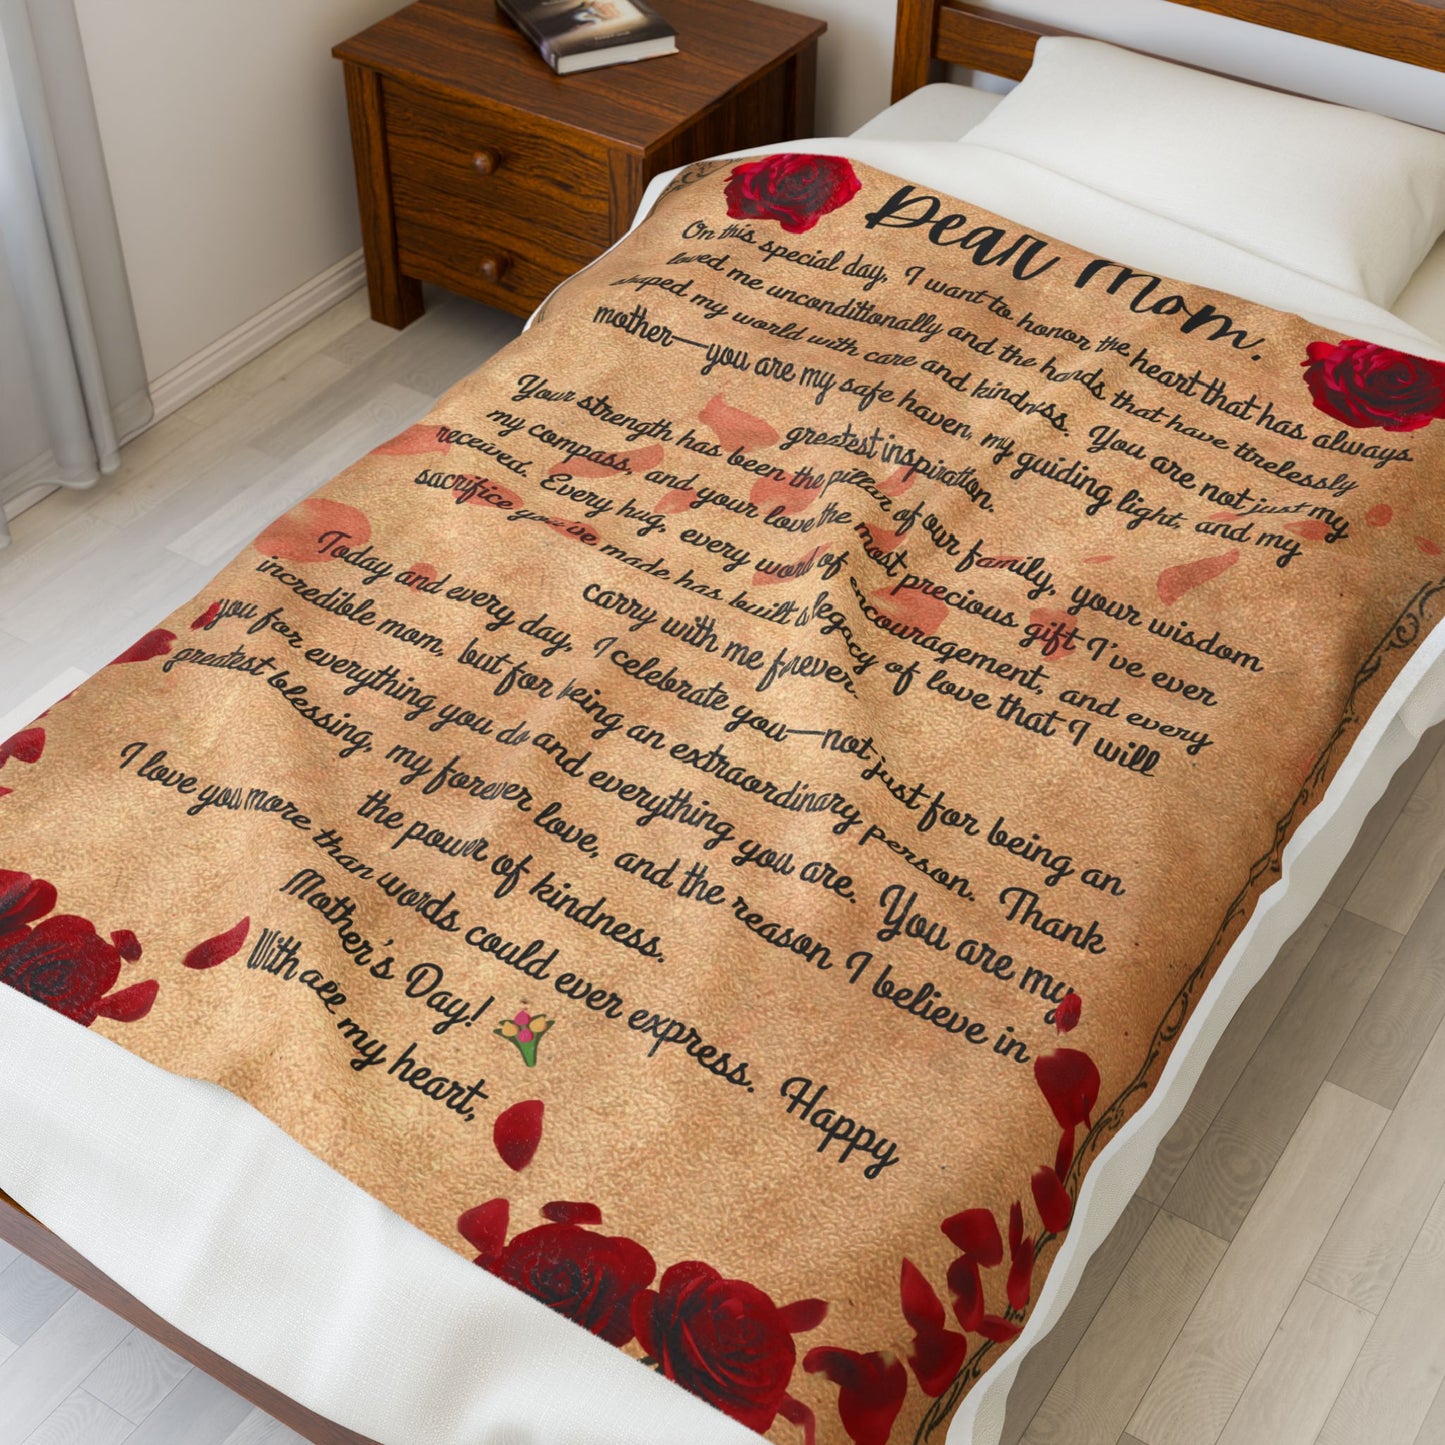 Dear Mom.
On this special day, I want to honor the heart that has always
loved me unconditionally and the hands that have tirelessly
shaped my world with care and kindness. You are not just my
mother—you are my safe haven, my guiding light, and my
greatest inspiration.
Your strength has been the pillar of our family, your wisdom
my compass, and your love the most precious gift I've ever
received. Every hug, every word of encouragement, and every
sacrifice you've made has built a legacy of love that I will
carry with me forever.
Today and every day, I celebrate you—not just for being an
incredible mom, but for being an extraordinary person. Thank
you for everything you do and everything you are. You are my
greatest blessing, my forever love, and the reason I believe in
the power of kindness.
I love you more than words could ever express. Happy
Mother's Day!
With all my heart,